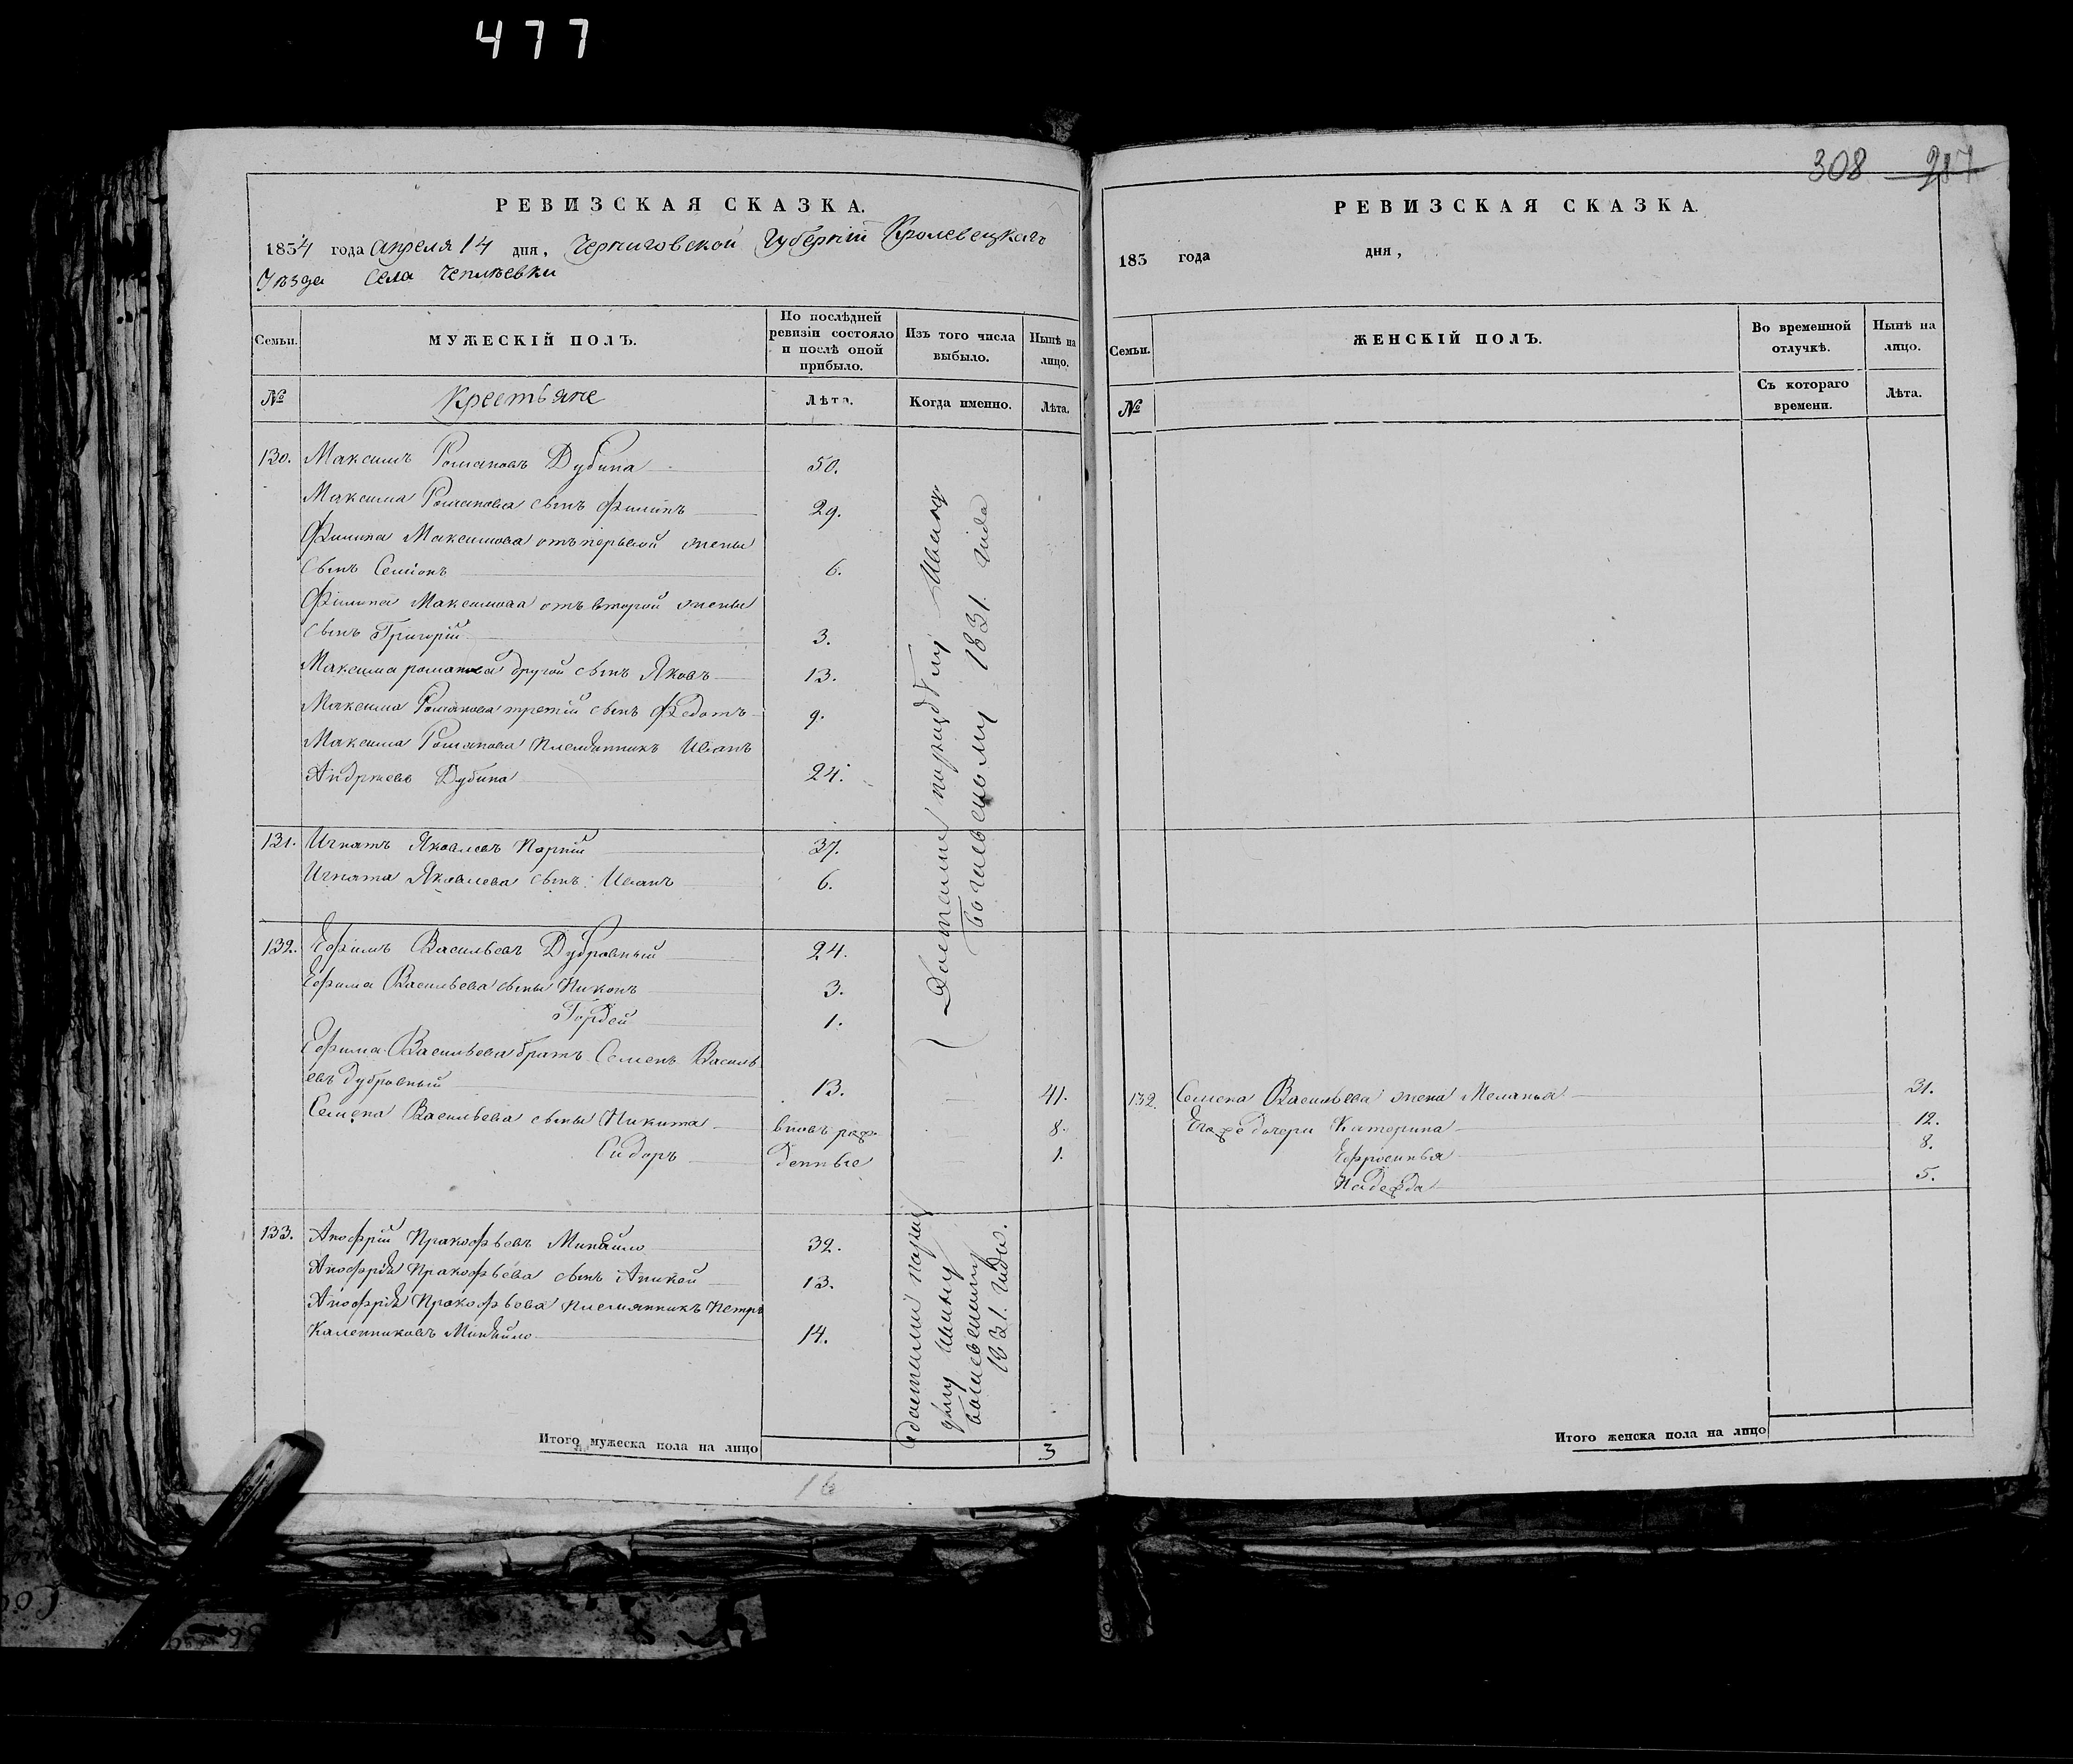 477
РЕВИЗСКАЯ СКАЗКА.
1834 года Апреля 14 дня, Черниговской Губерніи Кролевецкаго
Уѣзда Села Чеплѣевки
Семьи.
МУЖЕСКІЙ ПОЛЪ.
По послѣдней ревизіи состояло и послѣ оной прибыло.
Изъ того числа выбыло.
Нынѣ на лицо.
№
Крестьяне
Лѣта.
Когда именно.
Лѣта.
130. Максимъ Романовъ Дубина 50.
Максима Романова сынъ Филипъ 29.
Филипа Максимова отъ первой жены
сынъ Семіонъ 6.
Филипа Максимова отъ второй жены
сынъ Григорій 3.
Максима романова другой сынъ Яковъ 13.
Максима Романова третій сынъ Федотъ 9.
Максима Романова племянникъ Иванъ
Андрѣевъ Дубина 24.
131. Игнатъ Яковлевъ 37.
Игната Яковлева сынъ Иванъ 6.
Достались
1831. года
132. Ефимъ Васильевъ Дубровный 24.
Ефима Васильева сыны Никонъ 3.
Гордей 1.
Ефима Васильева братъ Семенъ Василь
евъ дубровный 13. 41.
Семена Васильева сыны Никита вновь рож 8.
Сидоръ денные 1.
133. Анофрій Пракофьевъ Михайло 32.
Анофрія Пракофьева сынъ Аникей 13.
Анофрія Пракофьева племянникъ Петръ
Каленниковъ Михайло 14.
достались
1831. года.
Итого мужеска пола на лицо 3
16
308 217
РЕВИЗСКАЯ СКАЗКА.
183 года дня,
Семьи.
ЖЕНСКІЙ ПОЛЪ.
Во временной отлучкѣ.
Нынѣ на лицо.
№
Съ котораго времени.
Лѣта.
132. Семена Васильева жена Меланья 31.
Его же дочери Катерина 12.
Ефросинья 8.
Надежда 5.
Итого женска пола на лицо